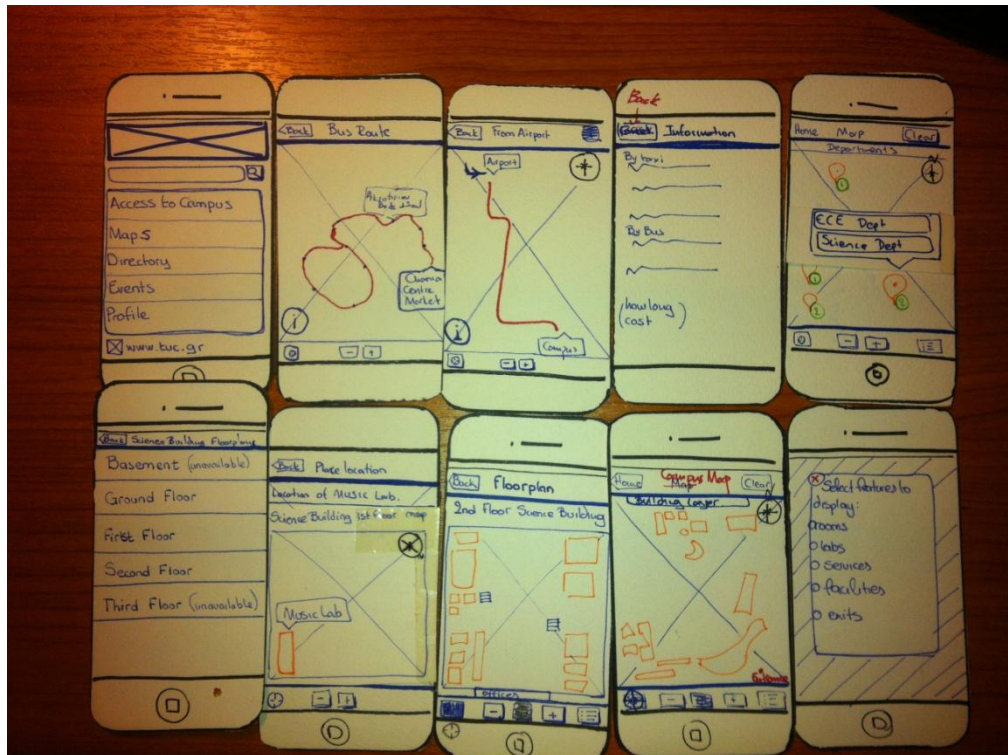 Access to Campus
Maps
Directory
Events
Profile
www.tuc.gr
Back
Bus Route
Centre
Market
i
- +
Back
From Airport
Airport
i
Campus
- +
Back
Back
Information
By taxi
By Bus
(how long
cost)
Home
Map
Clear
Departments
1
ECE Dept
Science Dept
1
1
2
- +
Back
Science Building Floorplans
Basement (unavailable)
Ground Floor
First Floor
Second Floor
Third Floor (unavailable)
Back
Place location
Location of Music Lab.
Science Building 1st floor map
Music Lab
- +
Back
Floorplan
2nd Floor Science Building
offices
- +
Home
Campus Map
Map
Clear
Building Layer
Entrance
- +
x Select features to
display:
rooms
labs
services
facilities
exits